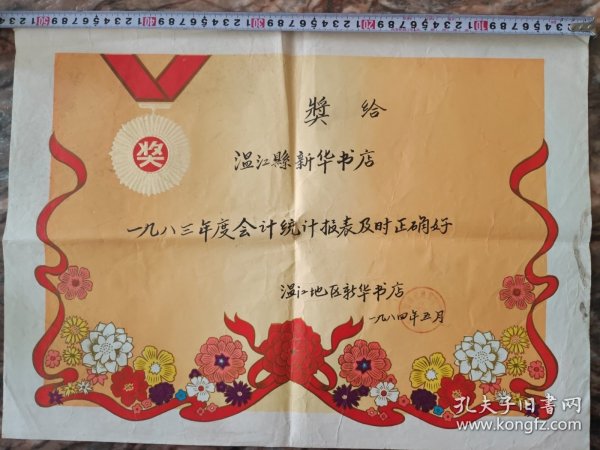 奬给
奖
温江縣新华书店
一九八三年度会计统计报表及时正确好
温江地区新华书店
一九八四年五月
孔夫子旧书网
www.kongfz.com